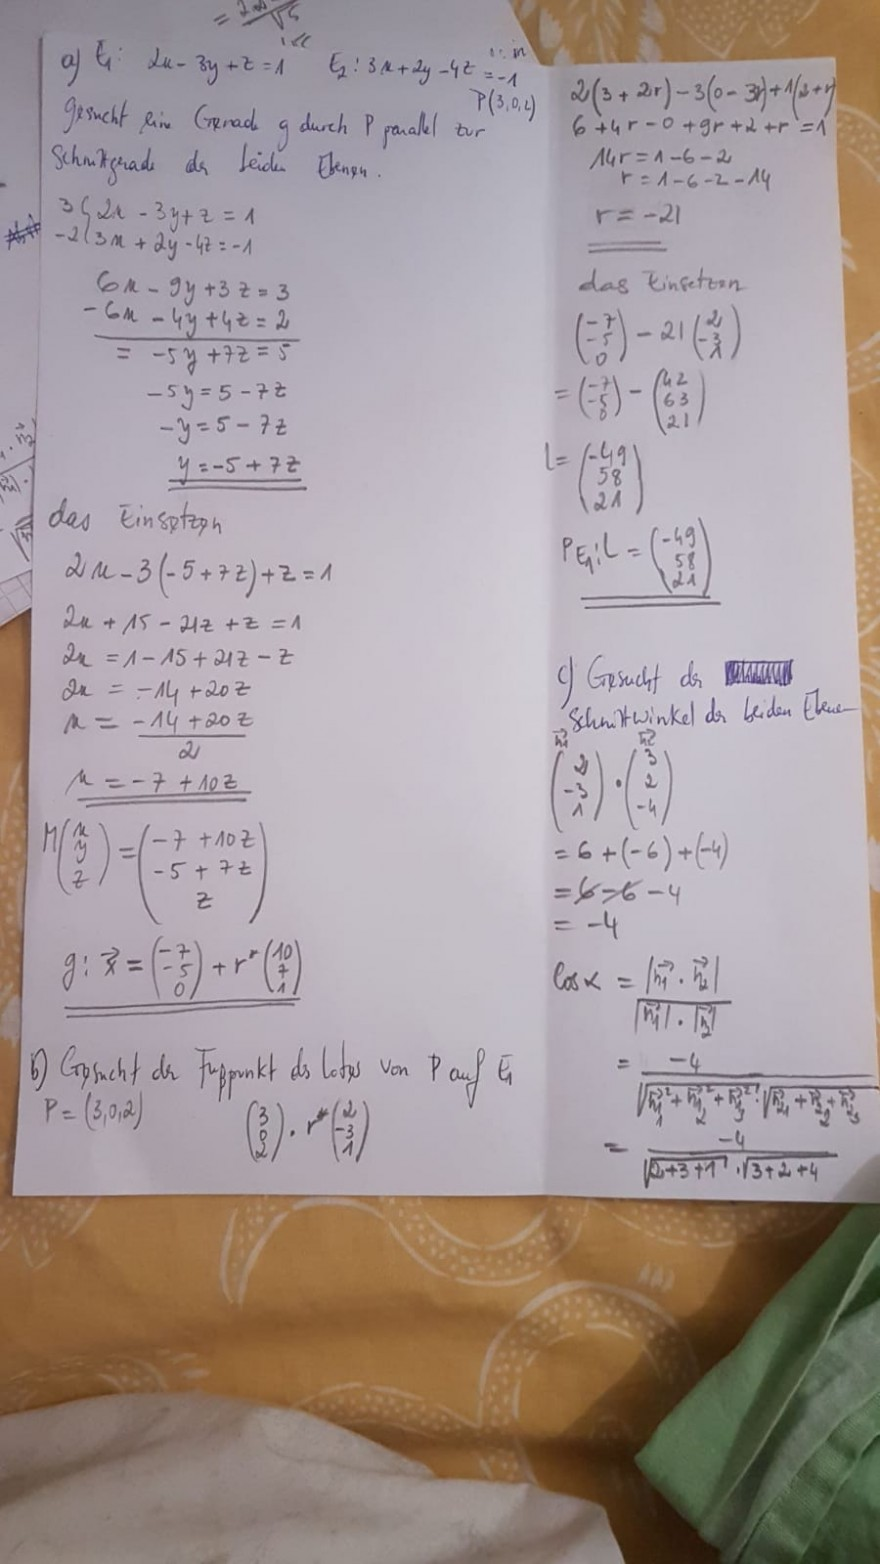 a) E₁: 2x - 3y + z = 1   E₂: 3x + 2y - 4z = -1
P(3,0,2)
gesucht eine Gerade g durch P parallel zur
Schnittgerade der beiden Ebenen.
3 ( 2x - 3y + z = 1
-2 ( 3x + 2y - 4z = -1
6x - 9y + 3z = 3
- 6x - 4y + 4z = 2
= -5y + 7z = 5
-5y = 5 - 7z
-y = 5 - 7z
y = -5 + 7z
das Einsetzen
2x - 3(-5 + 7z) + z = 1
2x + 15 - 21z + z = 1
2x = 1 - 15 + 21z - z
2x = -14 + 20z
x = -14 + 20z
2
x = -7 + 10z
M (x y z) = (-7 + 10z, -5 + 7z, z)
g: x⃗ = (-7 -5 0) + r* (10 7 1)
b) Gesucht der Fußpunkt des Lotes von P auf E₁
P = (3,0,2)   (3 0 2) · r* (2 -3 1)
2(3 + 2r) - 3(0 - 3r) + 1(2 + r)
6 + 4r - 0 + 9r + 2 + r = 1
14r = 1 - 6 - 2
r = 1 - 6 - 2 - 14
r = -21
das Einsetzen
(-7 -5 0) - 21 (2 -3 1)
= (-7 -5 0) - (42 63 21)
L = (-49 58 21)
P E₁: L = (-49 58 21)
c) Gesucht der
Schnittwinkel der beiden Ebenen
n⃗1 n⃗2
(2 -3 1) · (3 2 -4)
= 6 + (-6) + (-4)
= 6 - 6 - 4
= -4
cos α = |n⃗1 · n⃗2|
|n⃗1| · |n⃗2|
= -4
√n⃗1² + n⃗2² + n⃗3² · √n⃗21 + n⃗22 + n⃗23
= -4
√2+3+1 · √3+2+4